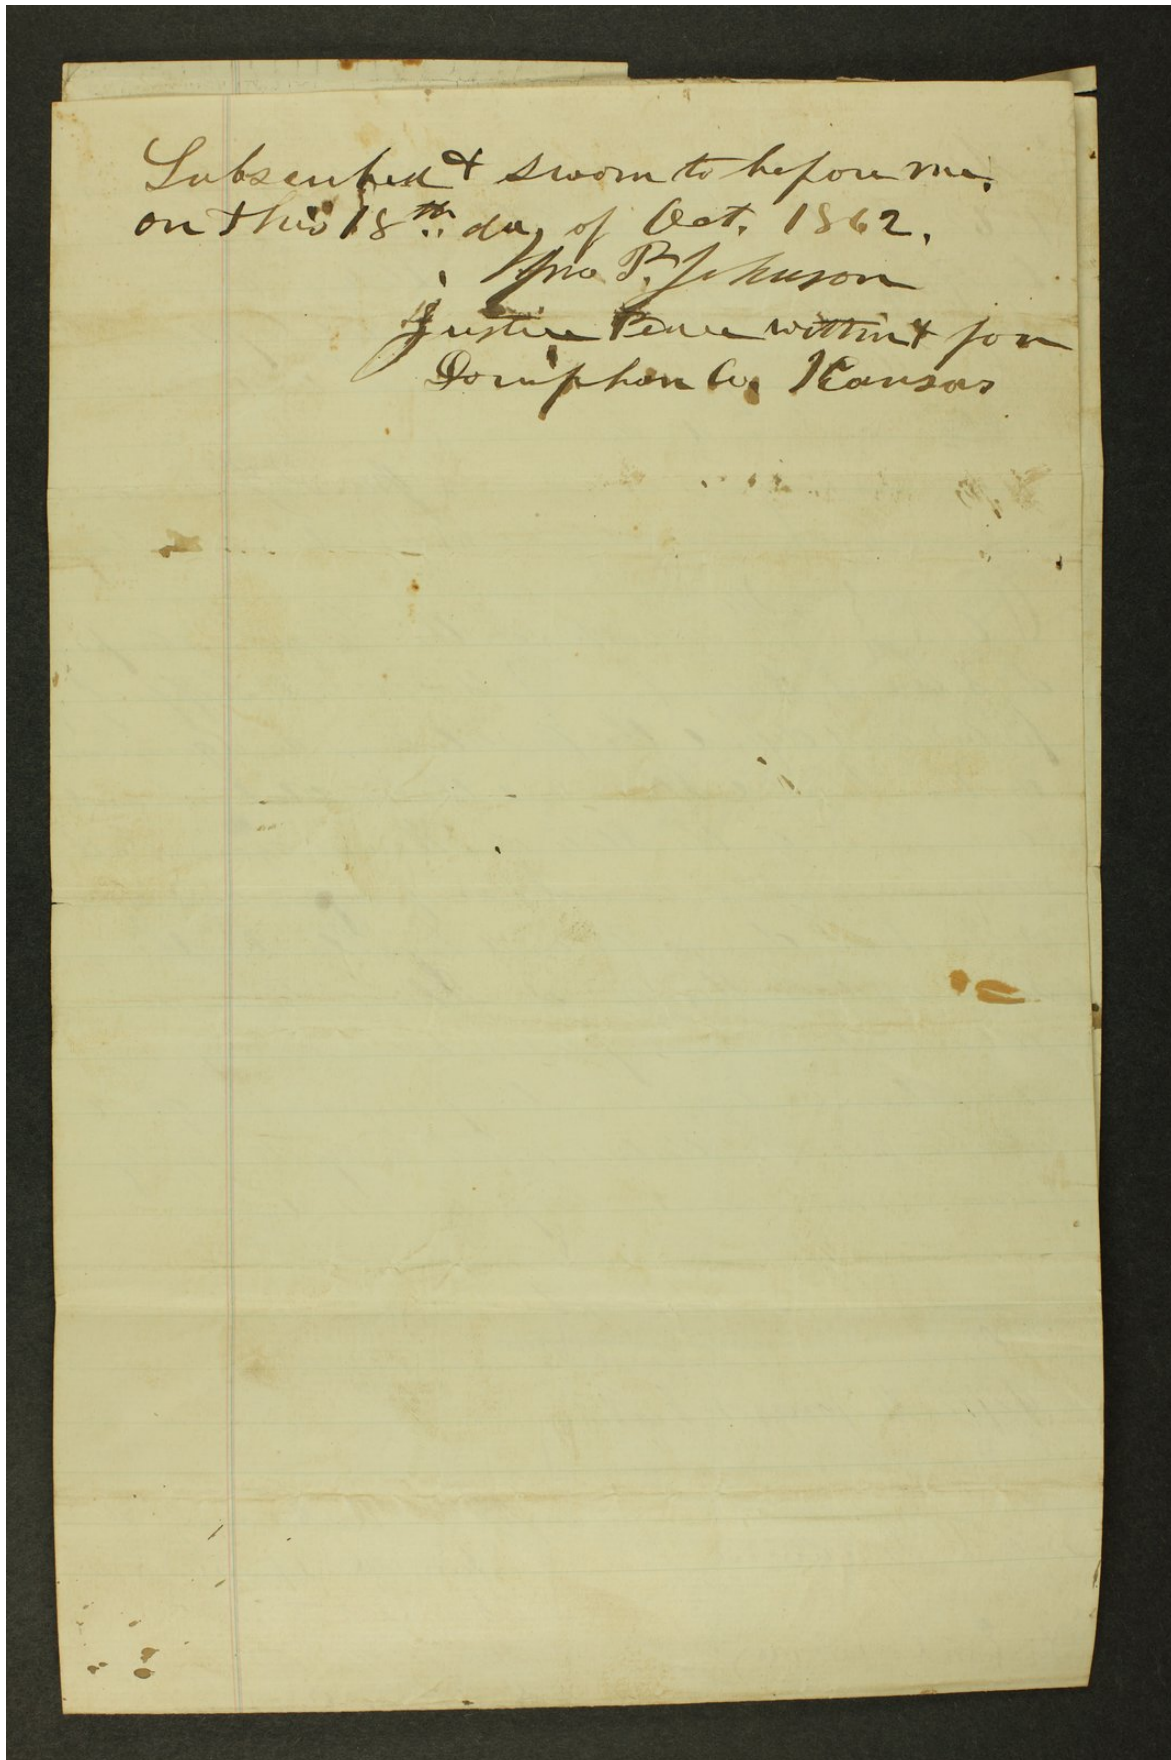 Subscribed & sworn to before me.
on this 18th day of Oct. 1862.
Jno P. Johnson
Justice Peace within & for
Doniphan Co. Kansas